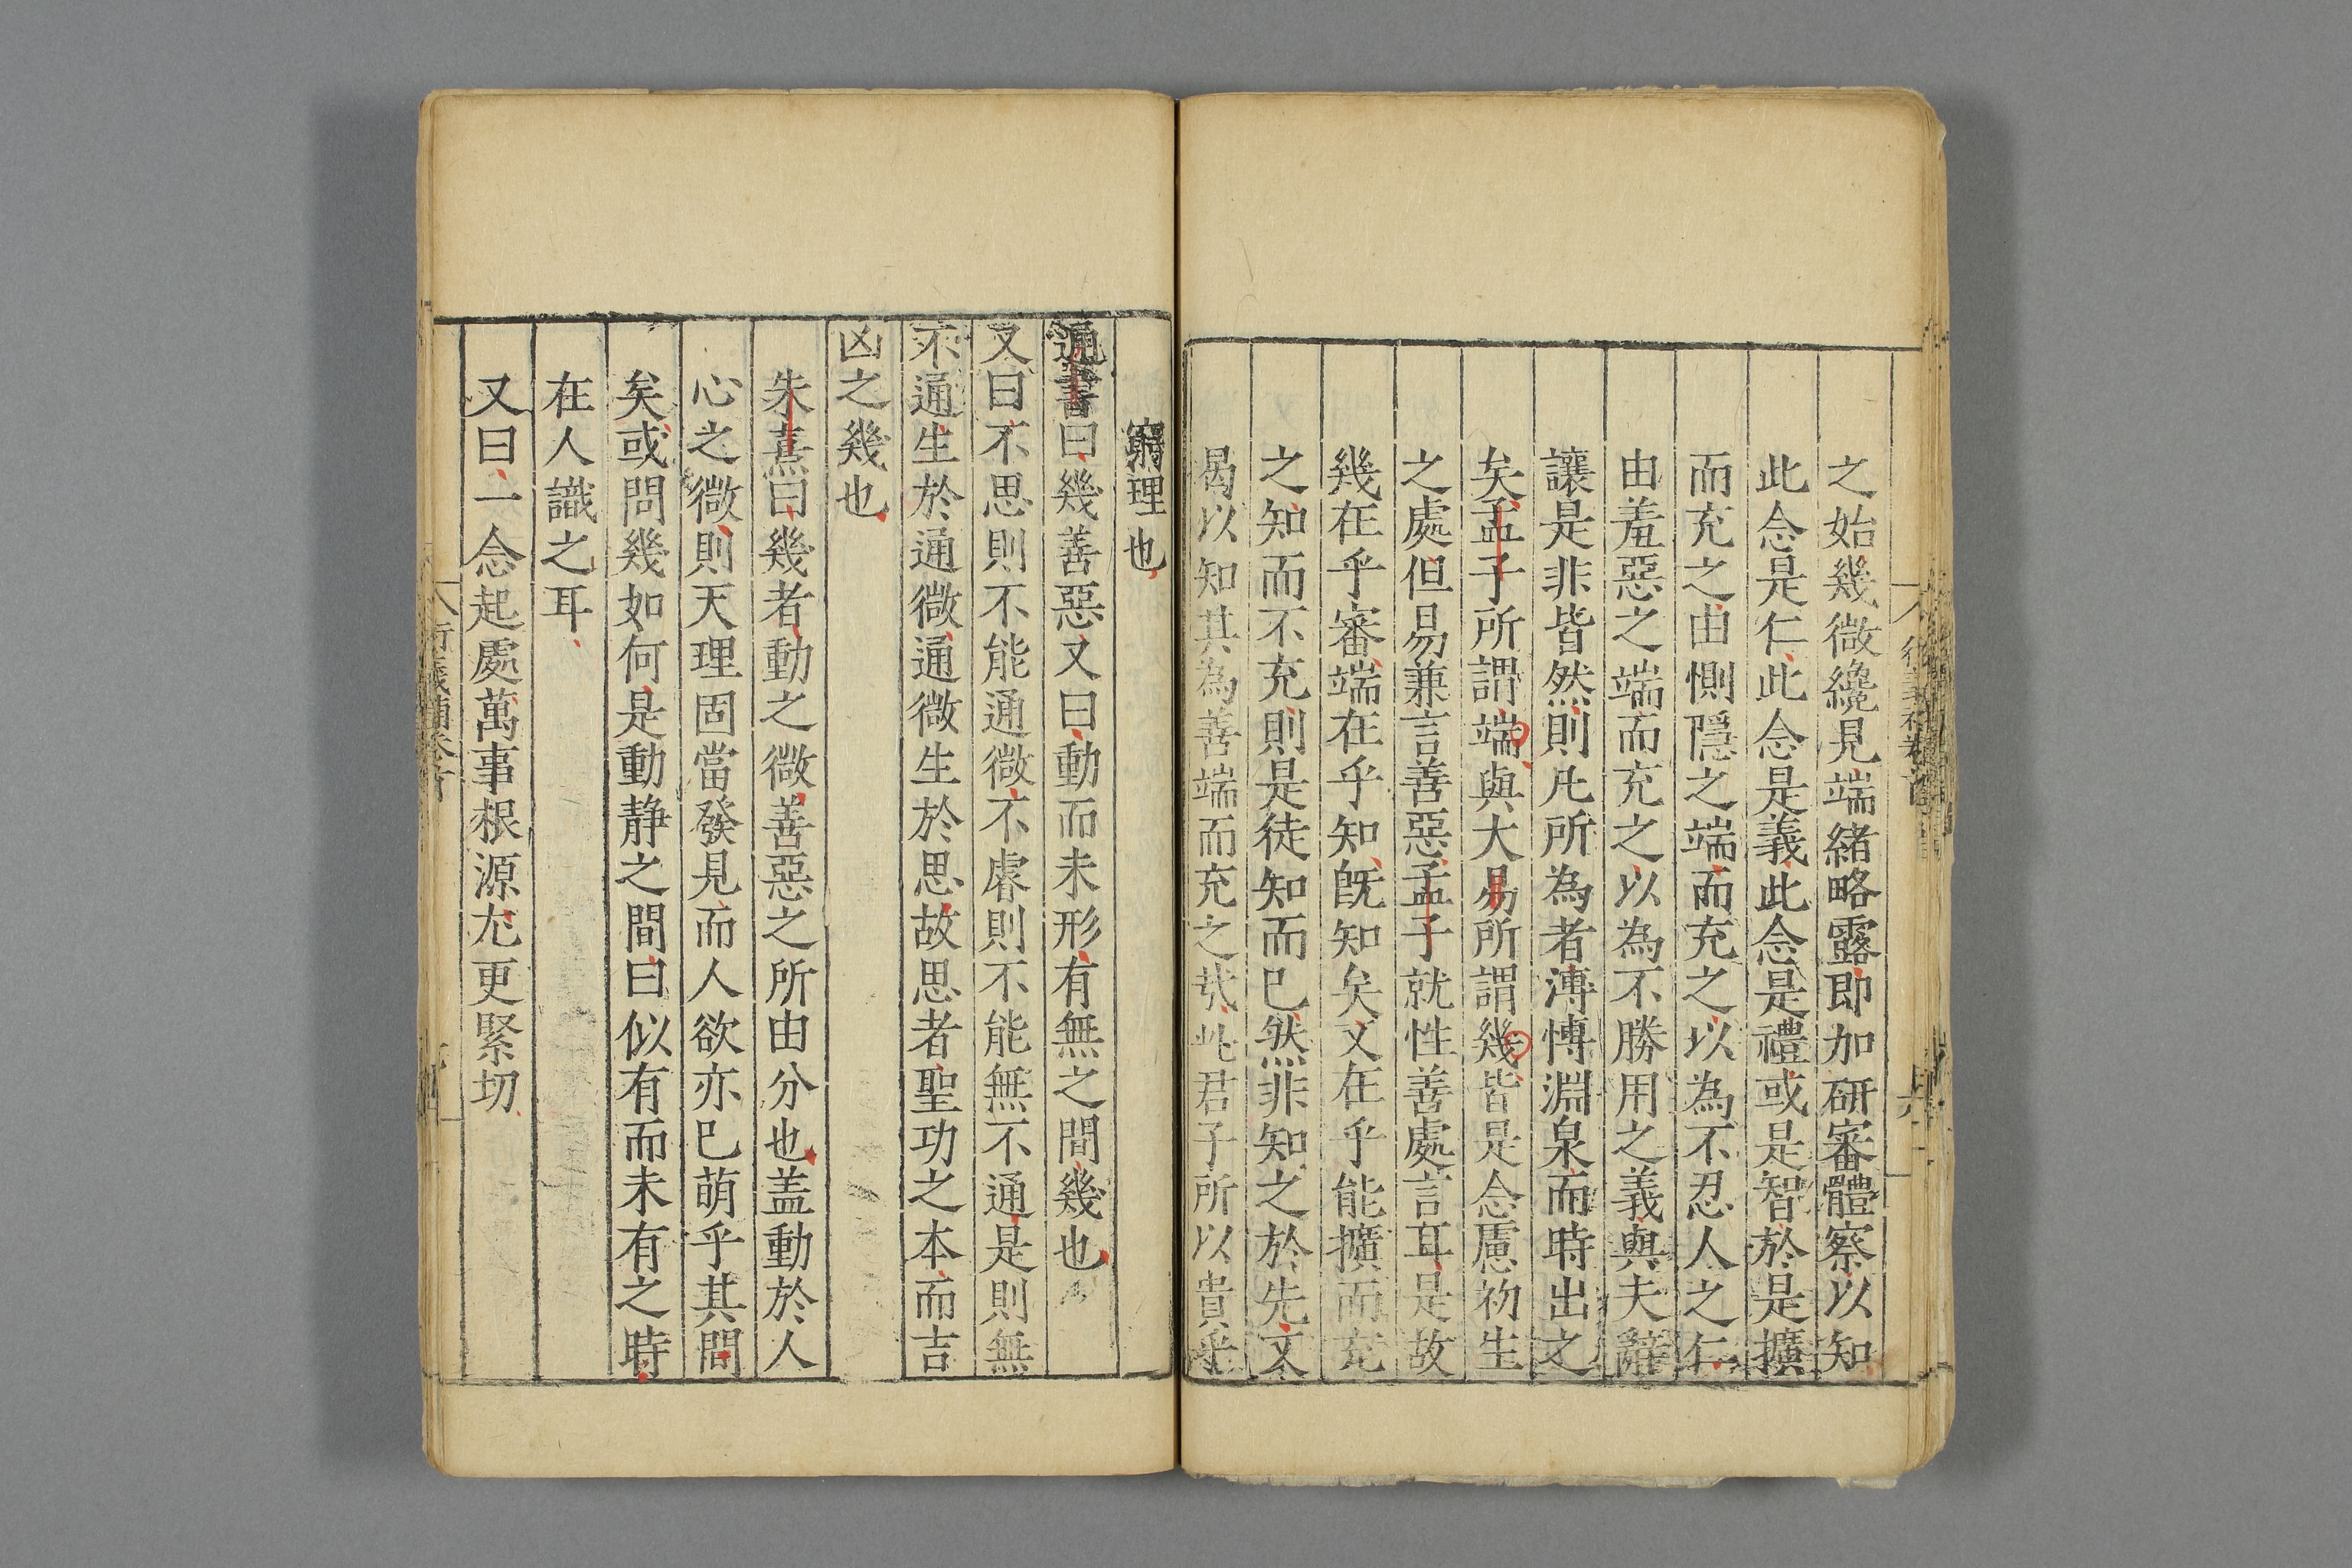 之始幾微纔見端緒略露即加研審體察以知
此念是仁此念是義此念是禮或是智於是擴
而充之由惻隱之端而充之以為不忍人之仁
由羞惡之端而充之以為不勝用之義與夫辭
讓是非皆然則凢所為者溥愽淵泉而時出之
矣孟子所謂端與大易所謂幾皆是念慮初生
之處但易兼言善惡孟子就性善處言耳是故
幾在乎審端在乎知旣知矣又在乎能擴而充
之知而不充則是徒知而已然非知之於先又
曷以知其為善端而充之哉此君子所以貴乎
窮理也
通書曰幾善惡又曰動而未形有無之間幾也
又曰不思則不能通微不睿則不能無不通是則無
不通生於通微通微生於思故思者聖功之本而吉
凶之幾也
朱熹曰幾者動之微善惡之所由分也盖動於人
心之微則天理固當發見而人欲亦已萌乎其間
矣或問幾如何是動静之間曰似有而未有之時
在人識之耳
又曰一念起處萬事根源尤更緊切
衍義補卷首